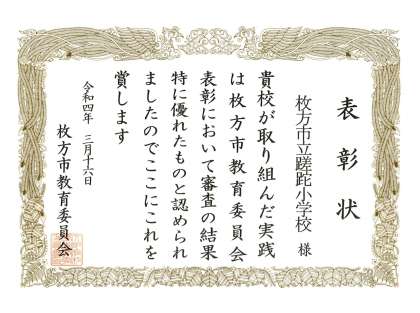 表彰状
枚方市立蹉跎小学校 様
貴校が取り組んだ実践
は枚方市教育委員会
表彰において審査の結果
特に優れたものと認められ
ましたのでここにこれを
賞します
令和四年 三月十六日
枚方市教育委員会